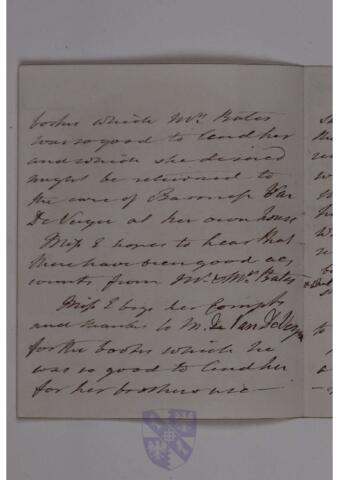 books which Mrs. Bates
was so good to lend her
and which she desired
might be returned to
the care of Baroness Van
De Weyer at her own house
Miss E hopes to hear that
there have been good ac,
counts from Mr. & Mrs. Bates
Miss E begs her Compts
and thanks to M. De Van De Weyer
for the books which he
was so good to lend her
for her brothers use —